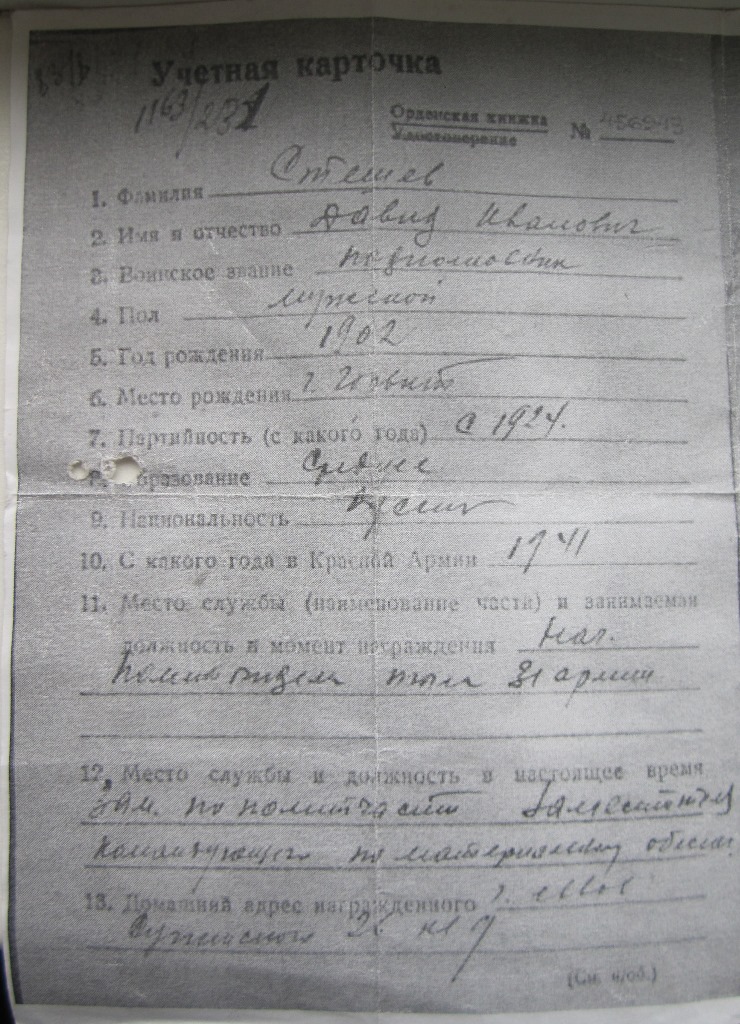 Учетная карточка
1163/231
Орденская книжка
Удостоверение № 456943
1. Фамилия Стешев
2. Имя и отчество Давид Иванович
3. Воинское звание подполковник
4. Пол мужской
5. Год рождения 1902
6. Место рождения г.
7. Партийность (с какого года) с 1924.
8. Образование среднее
9. Национальность русский
10. С какого года в Красной Армии 1941
11. Место службы (наименование части) и занимаемая
должность в момент награждения Нач.
тыла 31 армии
12. Место службы и должность в настоящее время
Зам. по политчасти Заместителя
Командующего по материальному обеспеч.
13. Домашний адрес награжденного г.
26 кв 9
(См. н/об.)